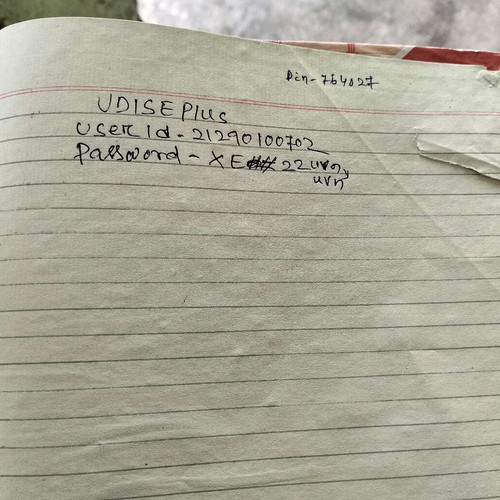 Pin-764027
UDISE Plus
User Id - 21290100702
Password - XE 22uvny
uvn